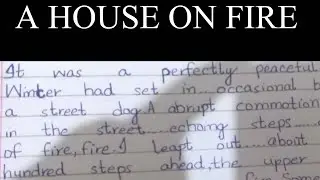 A HOUSE ON FIRE
It was a perfectly peaceful
Winter had set in...occasional b
a street dog.A abrupt commotion
in the street......echoing steps......
of fire,fire.I leapt out.....about
hundred steps ahead,the upper